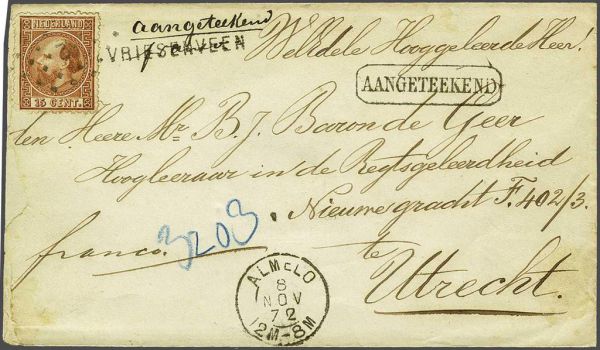 NEDERLAND
15 CENT.
aangeteekend
VRIESENVEEN
WelEdele Hooggeleerde Heer!
AANGETEEKEND
den Heere Mr B. J. Baron de Geer
Hoogleeraar in de Regtsgeleerdheid
Nieuwegracht F. 402/3.
3203
franco.
te
Utrecht.
ALMELO
8
NOV
72
12M-8M